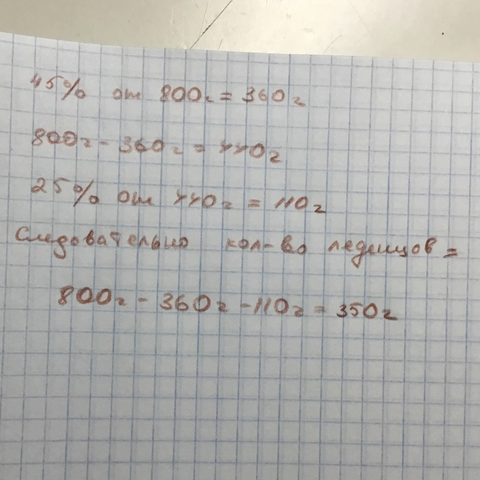 45% от 800г = 360г
800г - 360г = 440г
25% от 440г = 110г
Следовательно кол-во леденцов =
800г - 360г - 110г = 350г